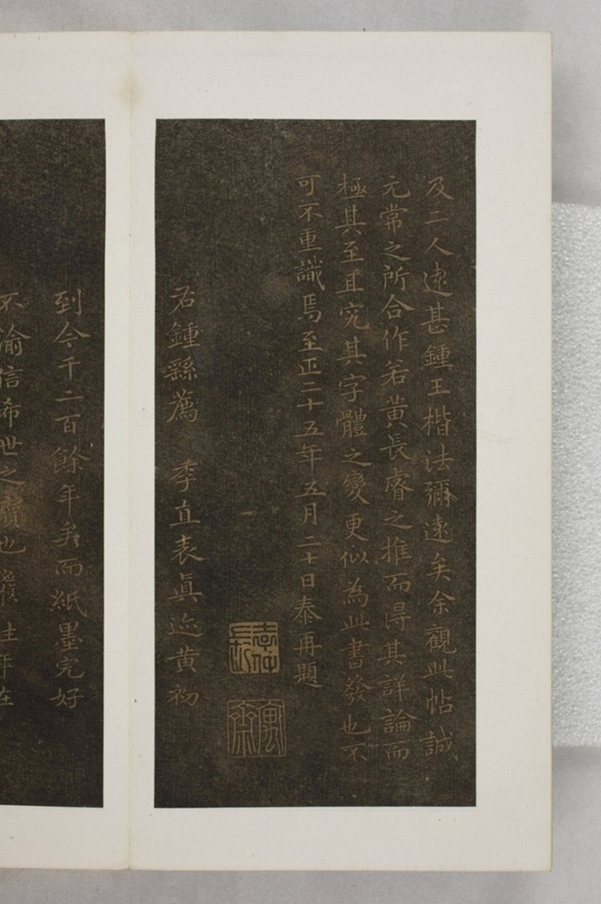 及二人逺甚鍾王楷法彌逺矣余觀此帖誠
元常之所合作若黄長睿之推而得其詳論而
極其至且究其字體之變更似為此書發也不
可不重識焉至正二十五年五月二十日泰再題
右鍾繇薦 季直表眞迹黄初
到今千二百餘年矣而紙墨完好
不渝信希世之寳也